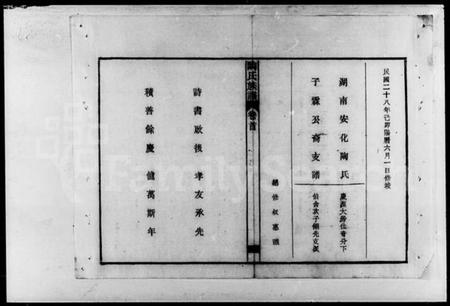 民國二十八年己卯陽曆六月一日修竣
湖南安化陶氏
子霖公裔支譜
總修叔惠謹
陶氏族譜 卷首
詩書啟後 孝友承先
積善餘慶 億萬斯年
FamilySearch